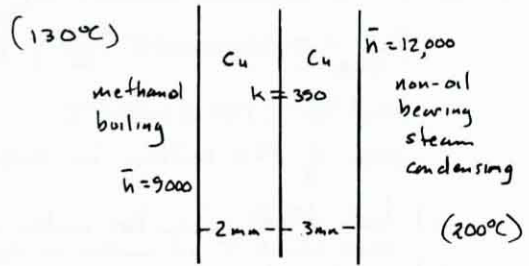 (130°C)
methanol
boiling
h̄ = 9000
Cu
Cu
k = 350
2 mm
3mm
h̄ = 12,000
non-oil
bearing
steam
condensing
(200°C)